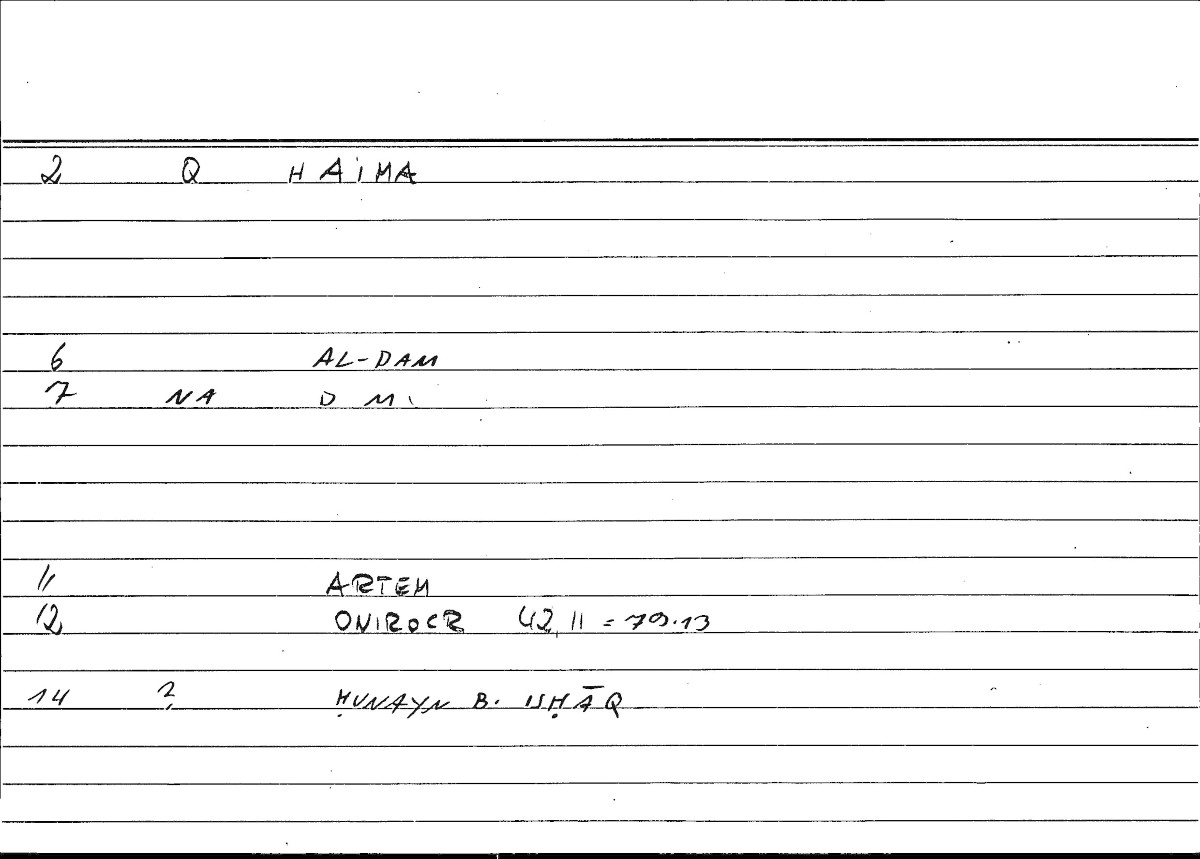 2 Q HAIMA
6 AL-DAM
7 NA D M.
11 ARTEM
12 ONIROCR 42,11 = 79.13
14 ? ḤUNAYN B. ISḤĀQ